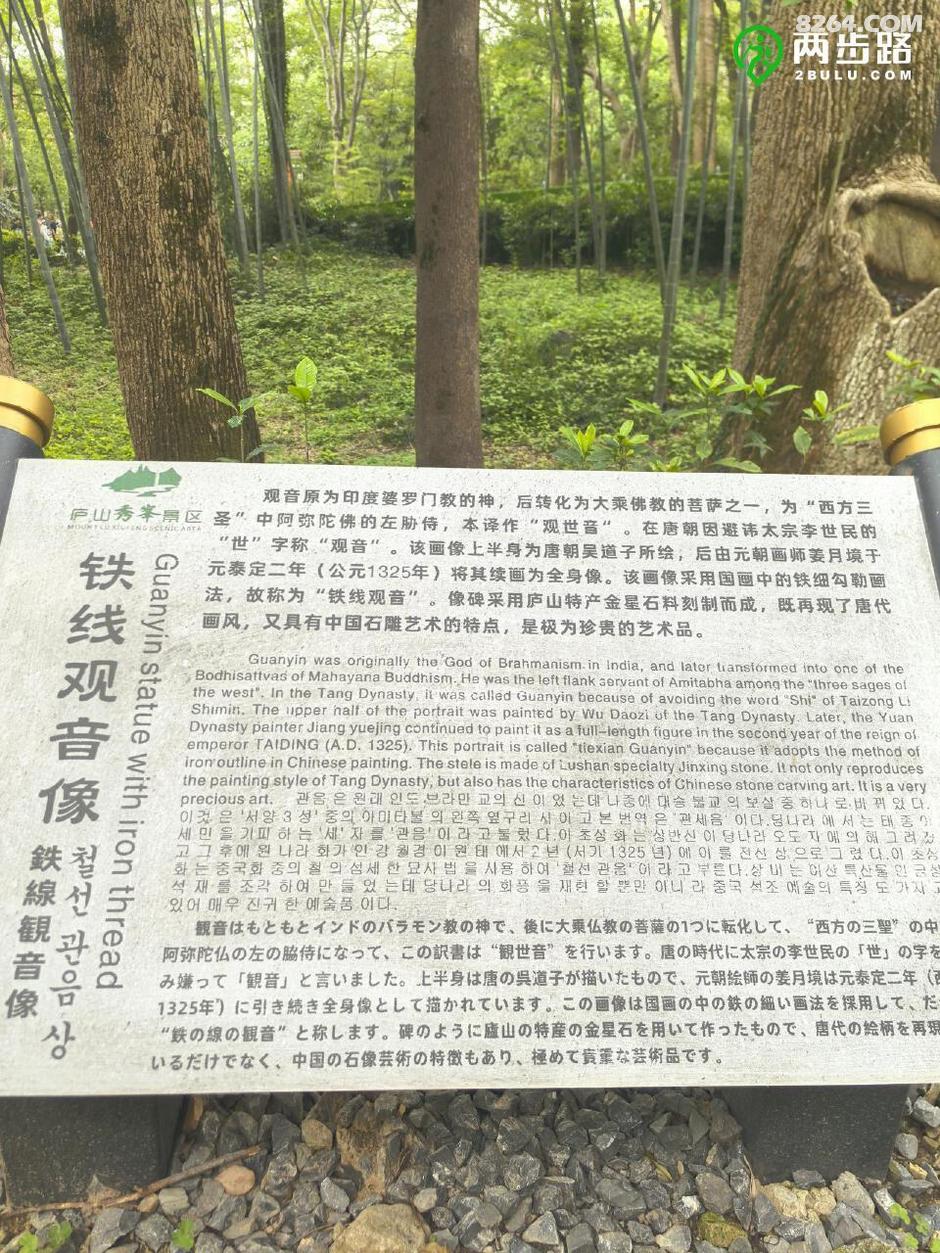 8264.COM
两步路
2BULU.COM
庐山秀峰景区
MOUNT LU XIUFENG SCENIC AREA
铁线观音像
Guanyin statue with iron thread
철선관음상
鉄線観音像
观音原为印度婆罗门教的神，后转化为大乘佛教的菩萨之一，为“西方三
圣”中阿弥陀佛的左胁侍，本译作“观世音”。在唐朝因避讳太宗李世民的
“世”字称“观音”。该画像上半身为唐朝吴道子所绘，后由元朝画师姜月境于
元泰定二年（公元1325年）将其续画为全身像。该画像采用国画中的铁细勾勒画
法，故称为“铁线观音”。像碑采用庐山特产金星石料刻制而成，既再现了唐代
画风，又具有中国石雕艺术的特点，是极为珍贵的艺术品。
Guanyin was originally the God of Brahmanism in India, and later transformed into one of the
Bodhisattvas of Mahayana Buddhism. He was the left flank servant of Amitabha among the "three sages of
the west". In the Tang Dynasty, it was called Guanyin because of avoiding the word "Shi" of Taizong Li
Shimin. The upper half of the portrait was painted by Wu Daozi of the Tang Dynasty. Later, the Yuan
Dynasty painter Jiang yuejing continued to paint it as a full-length figure in the second year of the reign of
emperor TAIDING (A.D. 1325). This portrait is called "tiexian Guanyin" because it adopts the method of
iron outline in Chinese painting. The stele is made of Lushan specialty Jinxing stone. It not only reproduces
the painting style of Tang Dynasty, but also has the characteristics of Chinese stone carving art. It is a very
precious art. 관음은 원래 인도 브라만 교의 신 이 었 는데 나중에 대승 불교 의 보살 중 하나 로 바 뀌 었 다.
이것 은 '서양 3 성' 중의 아미타불 의 왼쪽 옆구리 시 이 고 본 번역 은 '관세음' 이다.당나라 에 서 는 태 종
세 민 을 기피 하 는 '세' 자 를 '관음' 이 라 고 불 렀 다.이 초상 화 는 상반신 이 당나라 오도 자 에 의 해 그 려 졌
고 그 후에 원 나라 화가 인 강 월경 이 원 태 에서 2 년 (서기 1325 년) 에 이 를 전신 상 으로 그 렸 다.이 초상
화 는 중국화 중의 철 의 섬세 한 묘사 법 을 사용 하여 '철선 관음' 이 라 고 부른다.상 비 는 여산 특산물 인 금성
석 재 를 조각 하여 만 들 었 는데 당나라 의 화풍 을 재현 할 뿐만 아니 라 중국 석조 예술의 특징 도 가지 고
있어 매우 진귀 한 예술품 이다.
観音はもともとインドのバラモン教の神で、後に大乗仏教の菩薩の1つに転化して、“西方の三聖”の中
阿弥陀仏の左の脇侍になって、この訳書は“観世音”を行います。唐の時代に太宗の李世民の「世」の字を
み嫌って「観音」と言いました。上半身は唐の呉道子が描いたもので、元朝絵師の姜月境は元泰定二年（西
1325年）に引き続き全身像として描かれています。この画像は国画の中の鉄の細い画法を採用して、だ
“鉄の線の観音”と称します。碑のように廬山の特産の金星石を用いて作ったもので、唐代の絵柄を再現
いるだけでなく、中国の石像芸術の特徴もあり、極めて貴重な芸術品です。